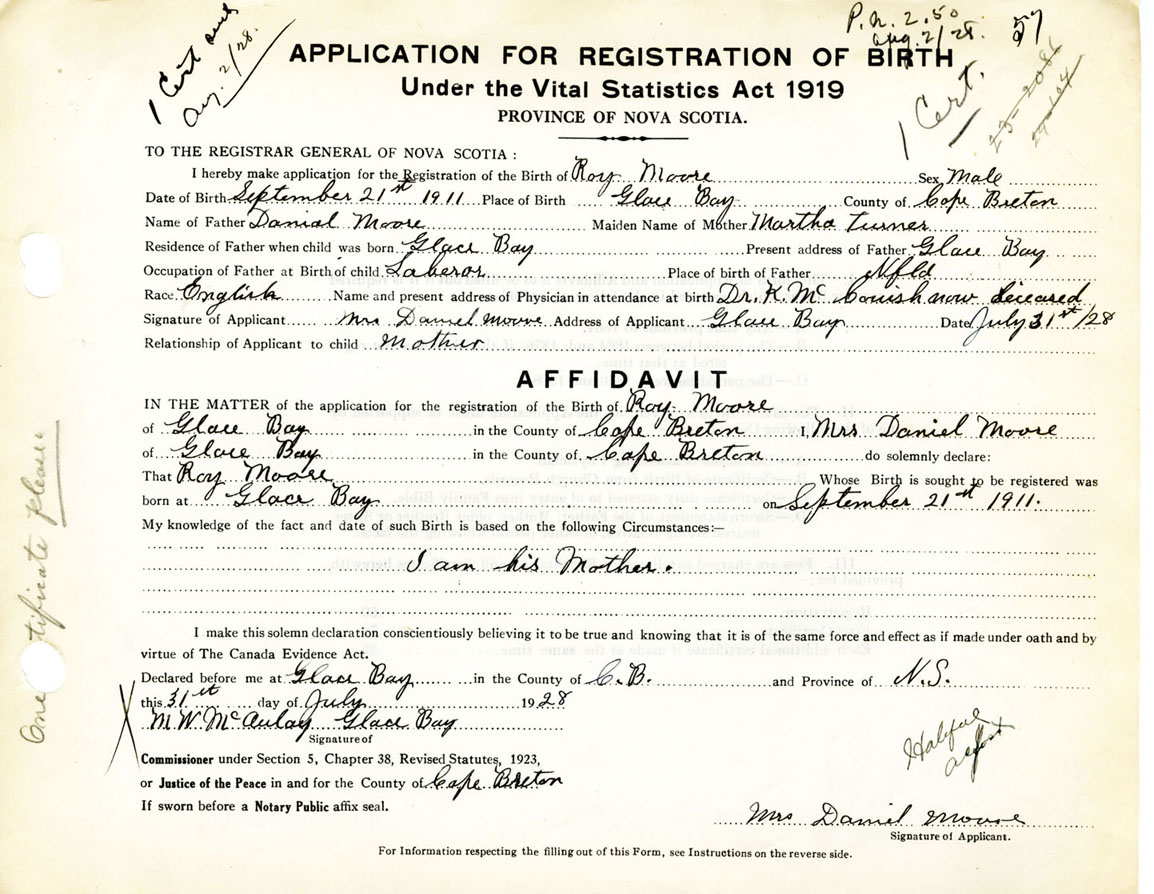 1 Cert and
Aug. 2/28.
P.N. 2.50
Aug. 2/28.
57
1 Cert.
APPLICATION FOR REGISTRATION OF BIRTH
Under the Vital Statistics Act 1919
PROVINCE OF NOVA SCOTIA.
TO THE REGISTRAR GENERAL OF NOVA SCOTIA :
I hereby make application for the Registration of the Birth of Roy Moore Sex Male
Date of Birth September 21st 1911 Place of Birth Glace Bay County of Cape Breton
Name of Father Daniel Moore Maiden Name of Mother Martha Turner
Residence of Father when child was born Glace Bay Present address of Father Glace Bay
Occupation of Father at Birth of child Laberor Place of birth of Father Nfld
Race English Name and present address of Physician in attendance at birth Dr. K. Mc now deceased
Signature of Applicant Mrs Daniel Moore Address of Applicant Glace Bay Date July 31st/28
Relationship of Applicant to child Mother
AFFIDAVIT
IN THE MATTER of the application for the registration of the Birth of Roy Moore
of Glace Bay in the County of Cape Breton I, Mrs Daniel Moore
of Glace Bay in the County of Cape Breton do solemnly declare:
That Roy Moore Whose Birth is sought to be registered was
born at Glace Bay on September 21st 1911.
My knowledge of the fact and date of such Birth is based on the following Circumstances:—
I am his Mother.
I make this solemn declaration conscientiously believing it to be true and knowing that it is of the same force and effect as if made under oath and by
virtue of The Canada Evidence Act.
Declared before me at Glace Bay in the County of C.B. and Province of N.S.
this 31st day of July 1928
M W McAulay Glace Bay
Signature of
Commissioner under Section 5, Chapter 38, Revised Statutes, 1923,
or Justice of the Peace in and for the County of Cape Breton
If sworn before a Notary Public affix seal.
Halifax
Mrs Daniel Moore
Signature of Applicant.
For Information respecting the filling out of this Form, see Instructions on the reverse side.
One Certificate please